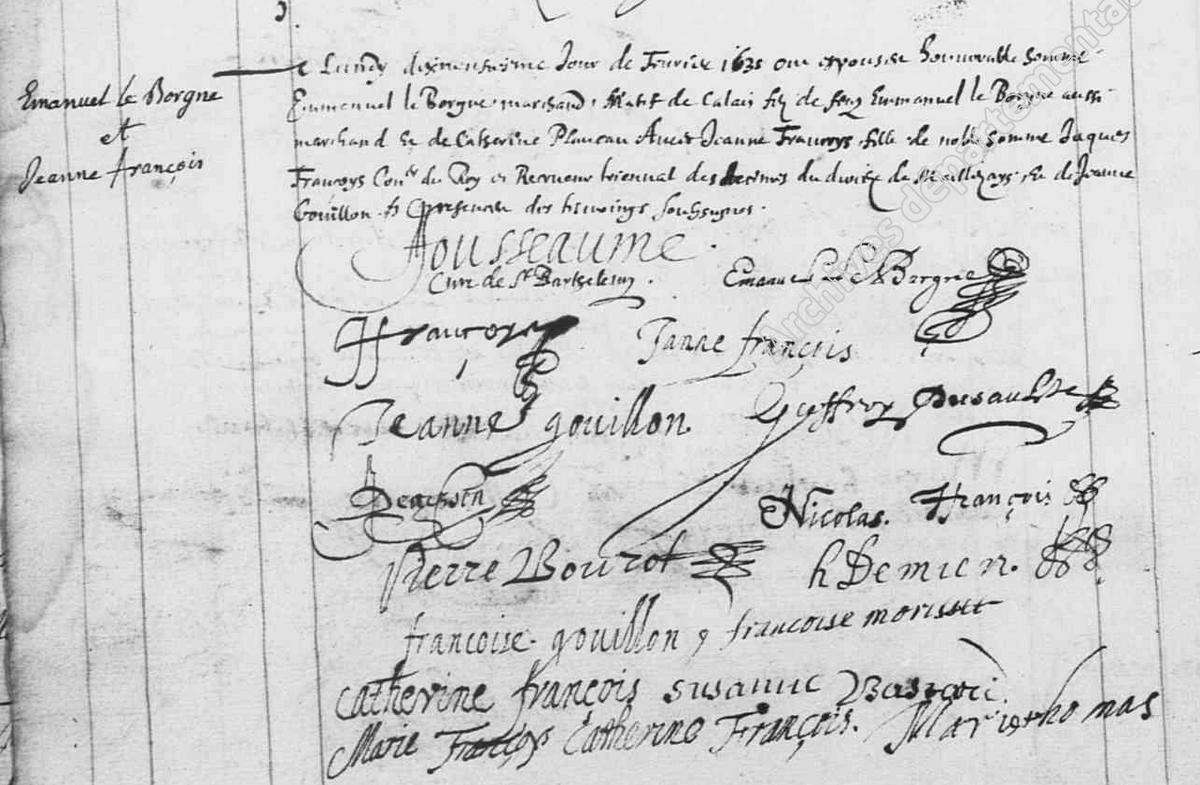 Emanuel le Borgne
et
Jeanne François
Lundy dixneufieme Jour de Feurier 1635 ont espousse honnorable homme
Emmanuel le Borgne marchand Natif de Calais filz de feu Emmanuel le Borgne aussi
marchand et de Catherine Auecq Jeanne Francoys fille de noble homme Jacques
Francoys Conr du Roy et Receueur triennal des decimes du diocese de Maillezays et de Jeanne
Gouillon En presence des tesmoings soubsignes.
Jousseaume
Cure de St Barthelemy.
Emanuel le Borgne
Francoys
Janne françois
Jeanne gouillon
Geffroy
Nicolas. François
Pierre Bourot
h Demien.
francoise gouillon
francoise morisset
catherine françois
susanne
Marie Françoys
Catherine François.
Marie thomas
Archives départementales